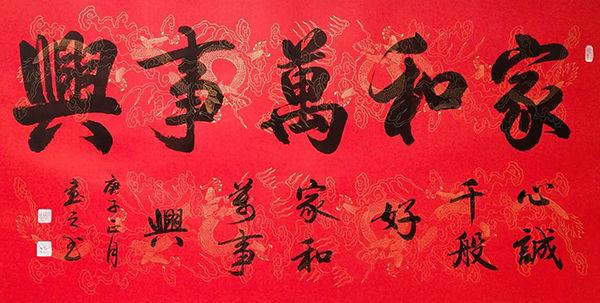 家和萬事興
心誠
千般
好
家和
萬事
興
庚子正月